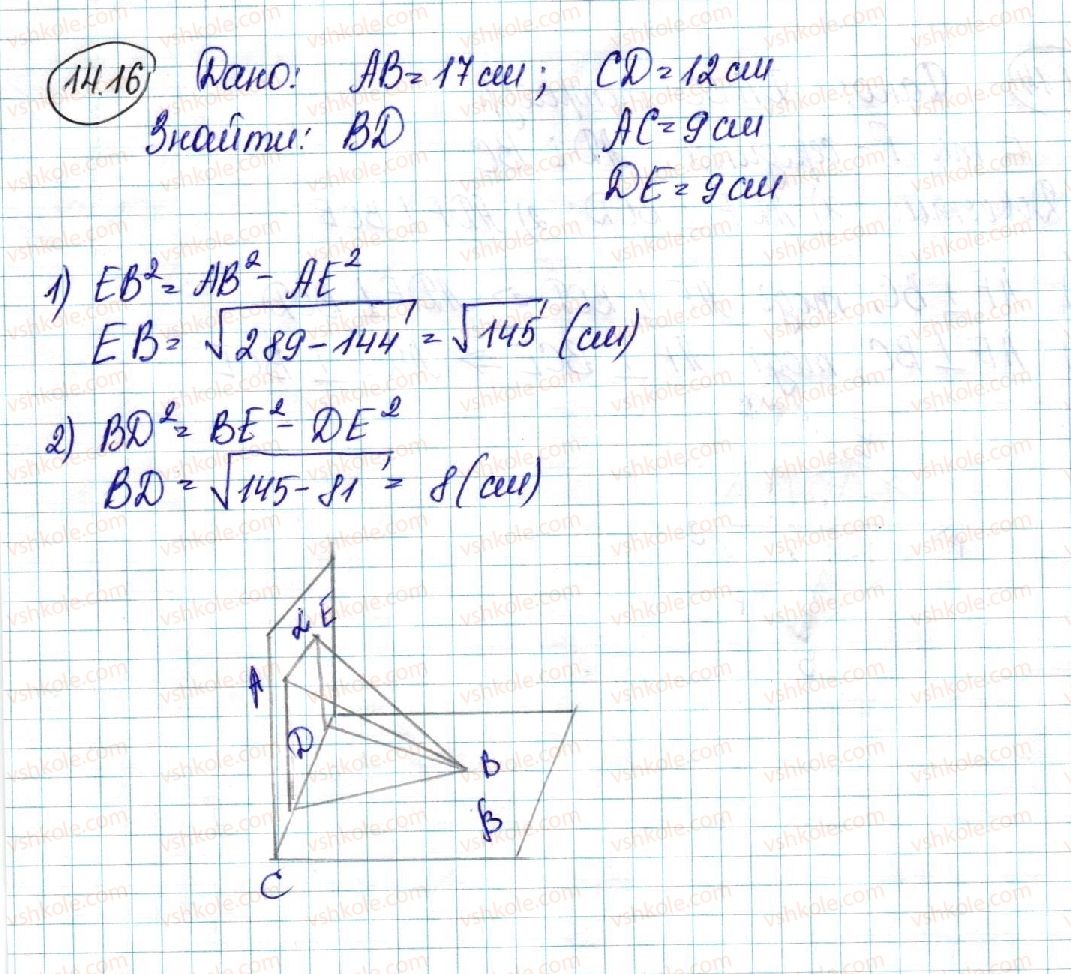 14.16 Дано: AB = 17 см; CD = 12 см
Знайти: BD AC = 9 см
DE = 9 см
1) EB² = AB² - AE²
EB = √289-144 = √145 (см)
2) BD² = BE² - DE²
BD = √145-81 = 8 (см)
α E
A
D
B
β
C